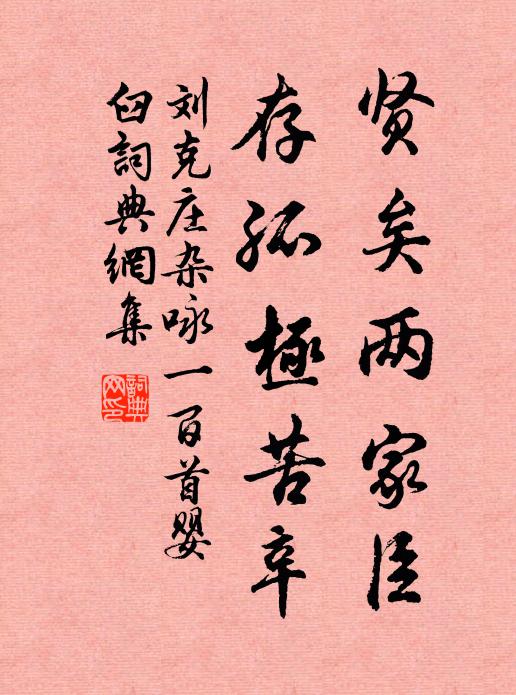 贤矣两家臣
存孤極苦辛
刘克庄杂咏一百首婴
臼詞典網集
詞典
网印